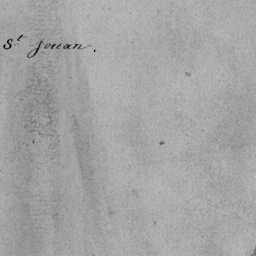 St Jouan.